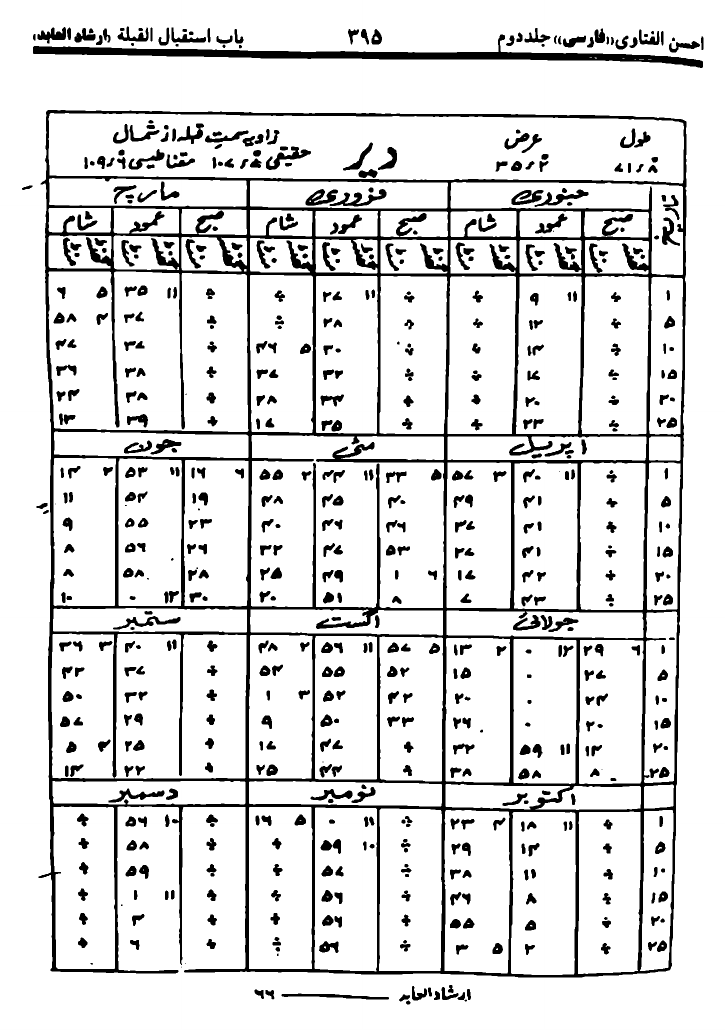 احسن الفتاوی «فارسی» جلد دوم ۳۹۵ باب استقبال القبلة (ارشاد العابد)
طول عرض دیر زاویہ سمت قبلہ از شمال
۷۱/۸ ۳۵/۲ حقیقی ۱۰۷/۵ مقناطیسی ۱۰۹/۶
تاریخ جنوری فروری مارچ
صبح عمود شام صبح عمود شام صبح عمود شام
گھنٹہ منٹ گھنٹہ منٹ گھنٹہ منٹ گھنٹہ منٹ گھنٹہ منٹ گھنٹہ منٹ گھنٹہ منٹ گھنٹہ منٹ گھنٹہ منٹ
۱ ÷ ۱۱ ۹ ÷ ÷ ۱۱ ۲۷ ÷ ÷ ۱۱ ۳۵ ۵ ۶
۵ ÷ ۱۲ ÷ ÷ ۲۸ ÷ ÷ ۳۷ ۴ ۵۸
۱۰ ÷ ۱۴ ÷ ÷ ۳۰ ۵ ۴۶ ÷ ۳۷ ۴۷
۱۵ ÷ ۱۷ ÷ ÷ ۳۲ ۳۷ ÷ ۳۸ ۳۶
۲۰ ÷ ۲۰ ÷ ÷ ۳۴ ۲۸ ÷ ۳۸ ۲۴
۲۵ ÷ ۲۳ ÷ ÷ ۳۵ ۱۷ ÷ ۳۹ ۱۳
اپریل مئی جون
۱ ÷ ۱۱ ۴۰ ۳ ۵۷ ۵ ۳۳ ۱۱ ۴۴ ۲ ۵۵ ۶ ۱۶ ۱۱ ۵۳ ۲ ۱۴
۵ ÷ ۴۱ ۴۹ ۴۰ ۴۵ ۴۸ ۱۹ ۵۴ ۱۱
۱۰ ÷ ۴۱ ۳۷ ۴۶ ۴۶ ۴۰ ۲۳ ۵۵ ۹
۱۵ ÷ ۴۱ ۲۷ ۵۳ ۴۷ ۳۲ ۲۶ ۵۶ ۸
۲۰ ÷ ۴۲ ۱۷ ۶ ۱ ۴۹ ۲۵ ۲۸ ۵۸ ۸
۲۵ ÷ ۴۳ ۷ ۸ ۵۱ ۲۰ ۳۰ ۱۲ ۰ ۱۰
جولائی اگست ستمبر
۱ ۶ ۲۹ ۱۲ ۰ ۲ ۱۳ ۵ ۵۷ ۱۱ ۵۶ ۲ ۴۸ ÷ ۱۱ ۴۰ ۳ ۳۶
۵ ۲۷ ۰ ۱۵ ۵۲ ۵۵ ۵۴ ÷ ۳۷ ۴۲
۱۰ ۲۴ ۰ ۲۰ ۴۲ ۵۲ ۳ ۱ ÷ ۳۲ ۵۰
۱۵ ۲۰ ۰ ۲۶ ۳۳ ۵۰ ۹ ÷ ۲۹ ۵۷
۲۰ ۱۴ ۱۱ ۵۹ ۳۲ ÷ ۴۷ ۱۷ ÷ ۲۵ ۴ ۵
۲۵ ۸ ۵۸ ۳۸ ÷ ۴۴ ۲۵ ÷ ۲۲ ۱۴
اکتوبر نومبر دسمبر
۱ ÷ ۱۱ ۱۸ ۴ ۲۳ ÷ ۱۱ ۰ ۵ ۱۶ ÷ ۱۰ ۵۶ ÷
۵ ÷ ۱۴ ۲۹ ÷ ۱۰ ۵۹ ÷ ÷ ۵۸ ÷
۱۰ ÷ ۱۱ ۳۸ ÷ ۵۷ ÷ ÷ ۵۹ ÷
۱۵ ÷ ۸ ۴۶ ÷ ۵۶ ÷ ÷ ۱۱ ۱ ÷
۲۰ ÷ ۵ ۵۵ ÷ ۵۶ ÷ ÷ ۳ ÷
۲۵ ÷ ۲ ۵ ۳ ÷ ۵۶ ÷ ÷ ۶ ÷
ارشاد العابد ـــــــ ۶۶